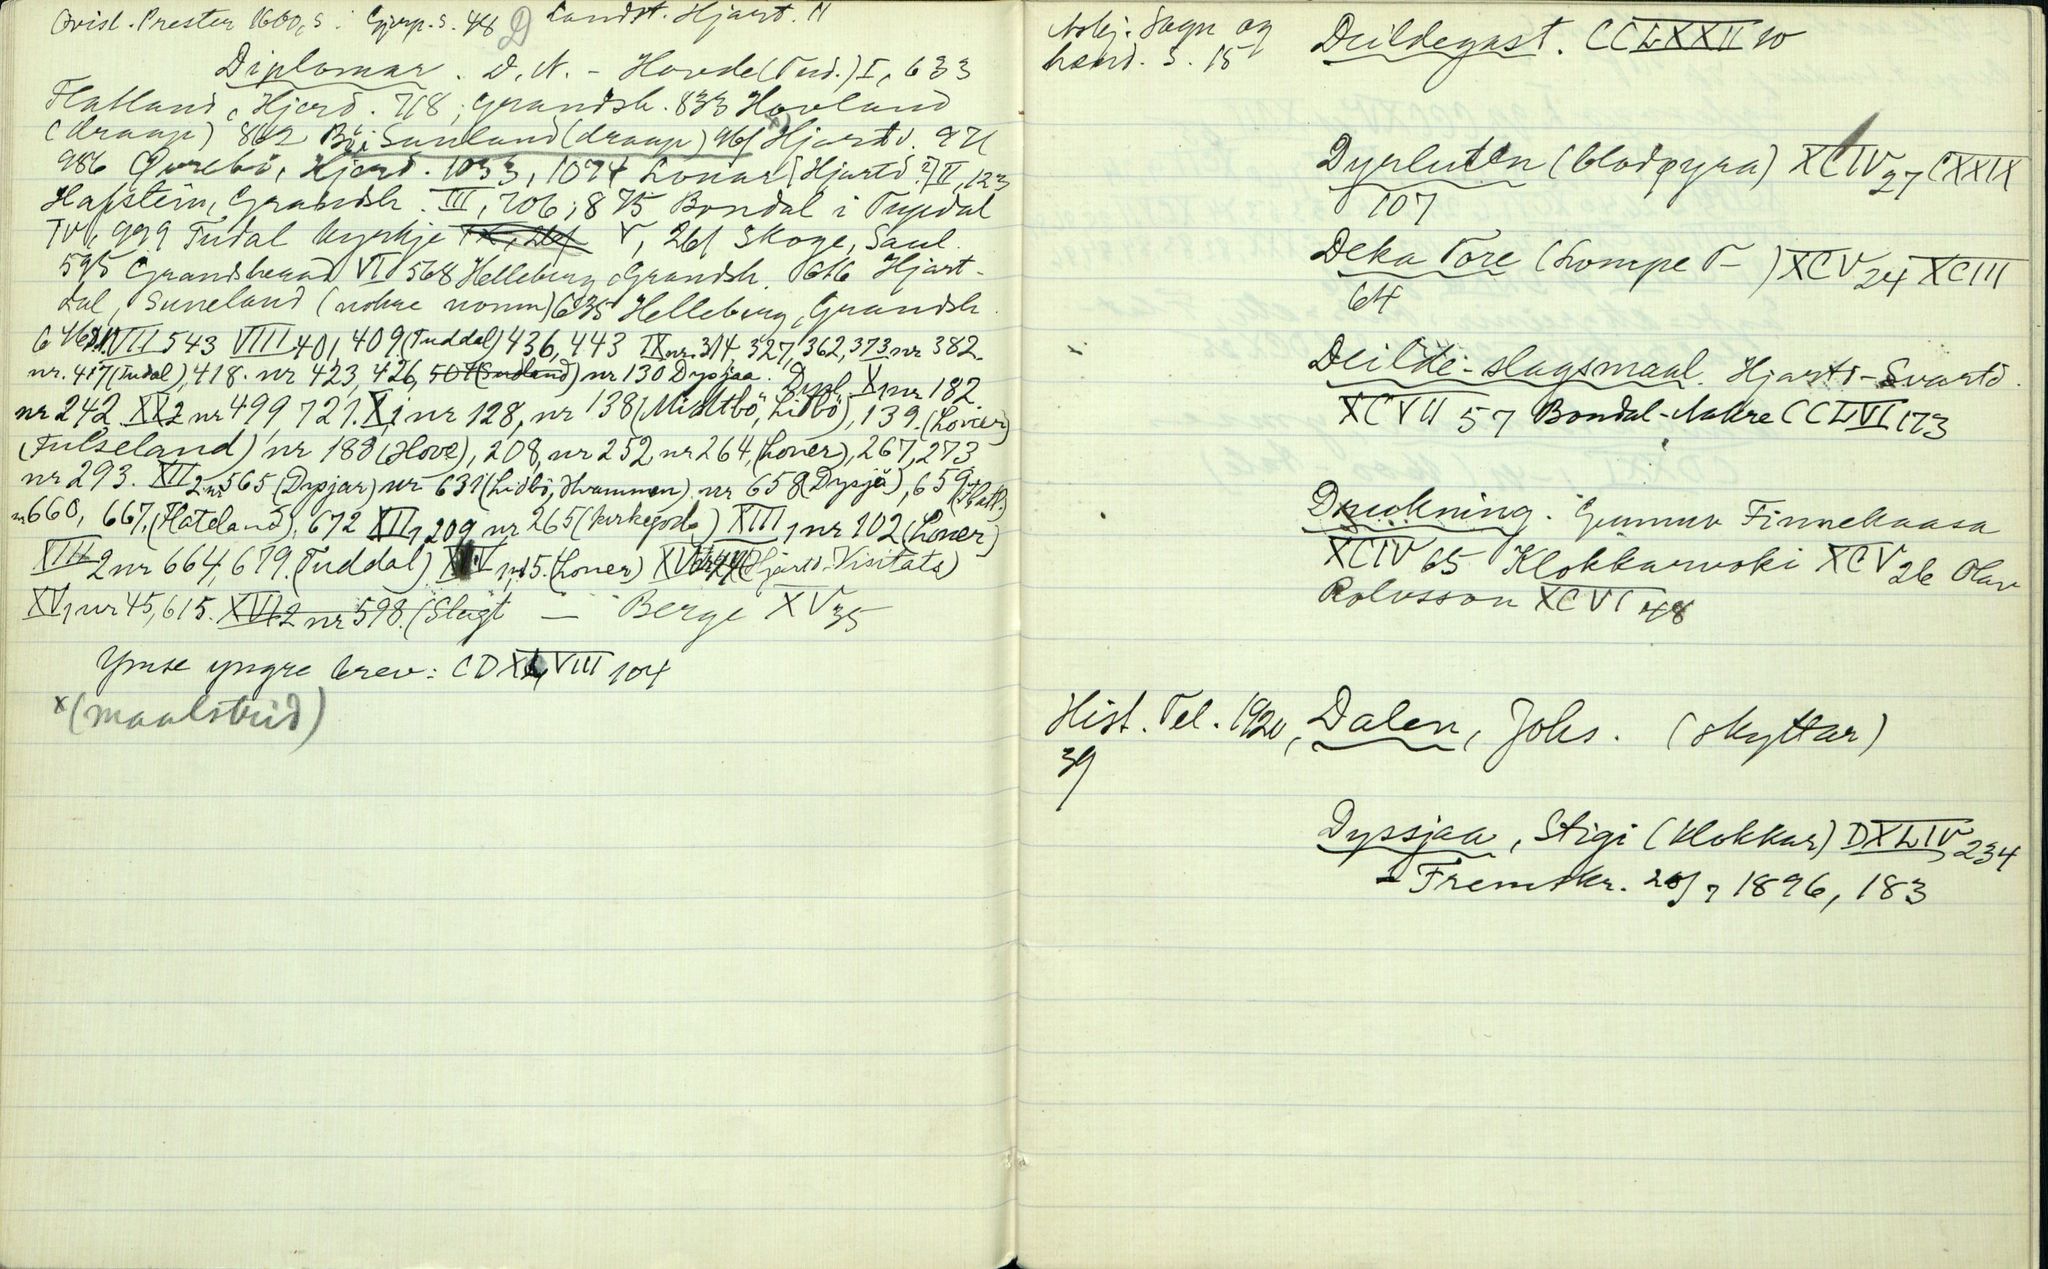 Ovist. Prester 1600, s. Gjerp. s. 48 D Landst. Hjart. 11
Diplomar. D. N. - Hovde (Tud.) I, 633
Flatland, Hjerd. 718, Gransh. 833 Hovland
(draap) 862 Bö i Sauland (draap) 961 x) Hjartd. 971
986 Qvrebö, Hjerd. 1033, 1074 Lonar (Hjartd.?) II, 123
Hafstein, Gransh. III, 706; 875 Bondal i Tupdal
IV, 999 Tudal kyrkje V, 261 Skoge, Saul.
595 Gransherad VI 568 Helleberg Gransh. 616 Hjart-
dal, Suneland (nokre nomn) 635 Helleberg, Gransh.
646 VII 543 VIII 401, 409 (Tuddal) 436, 443 IX nr. 314, 327, 362, 373 nr 382.
nr. 417 (Tudal), 418. nr 423, 426, 507 (Sudland) nr 130 Dysjaa. Dipl. X 1 nr 182.
nr 242 XI 2 nr 499, 721. XI, nr 128, nr 138 (Midtbö, Lidbö), 139. (Lovier)
(Fulseland) nr 188 (Hove), 208, nr 252, nr 264, (Loner), 267, 273
nr 293. XII 2 nr 565 (Dysjar) nr 631 (Lidbö, Hvammen) nr 658 (Dysjå), 659 (Flatl.)
nr 660, 667, (Flateland), 672 XII, 209, nr 265 (kirkegods) XIII 1 nr 102 (Loner)
XIII 2 nr 664, 679. (Tuddal) XIV 1 nr 15. (Loner) (Hjartd. Visitats)
XV, nr 45, 615. XVI 2 nr 598. (Slegt — Berge XV 35
Ymse yngre brev: CDXLVIII 104
x (maalstrid)
Nolj. Sagn og
hænd. s. 15
Deildegast. CCLXXII 10
Dyrluten (blodpyra) XCIV 27 CXXIX
107
Deka Tore (Lompe T-) XCV 24 XCIII
64
Deilde-slagsmaal. Hjartd-Svartd.
XCVII 57 Bondal-Nakre CCLVI 173
Druckning. Gunnar Finnekaasa
XCIV 65 Klokkarvoki XCV 26 Olav
Rolvsson XCVI 48
Hist. Tel. 1920,
39
Dalen, Johs. (skyttar)
Dyssjaa, Stigi (klokkar) DXLIV 234
- Fremskr. 20/7 1896, 183